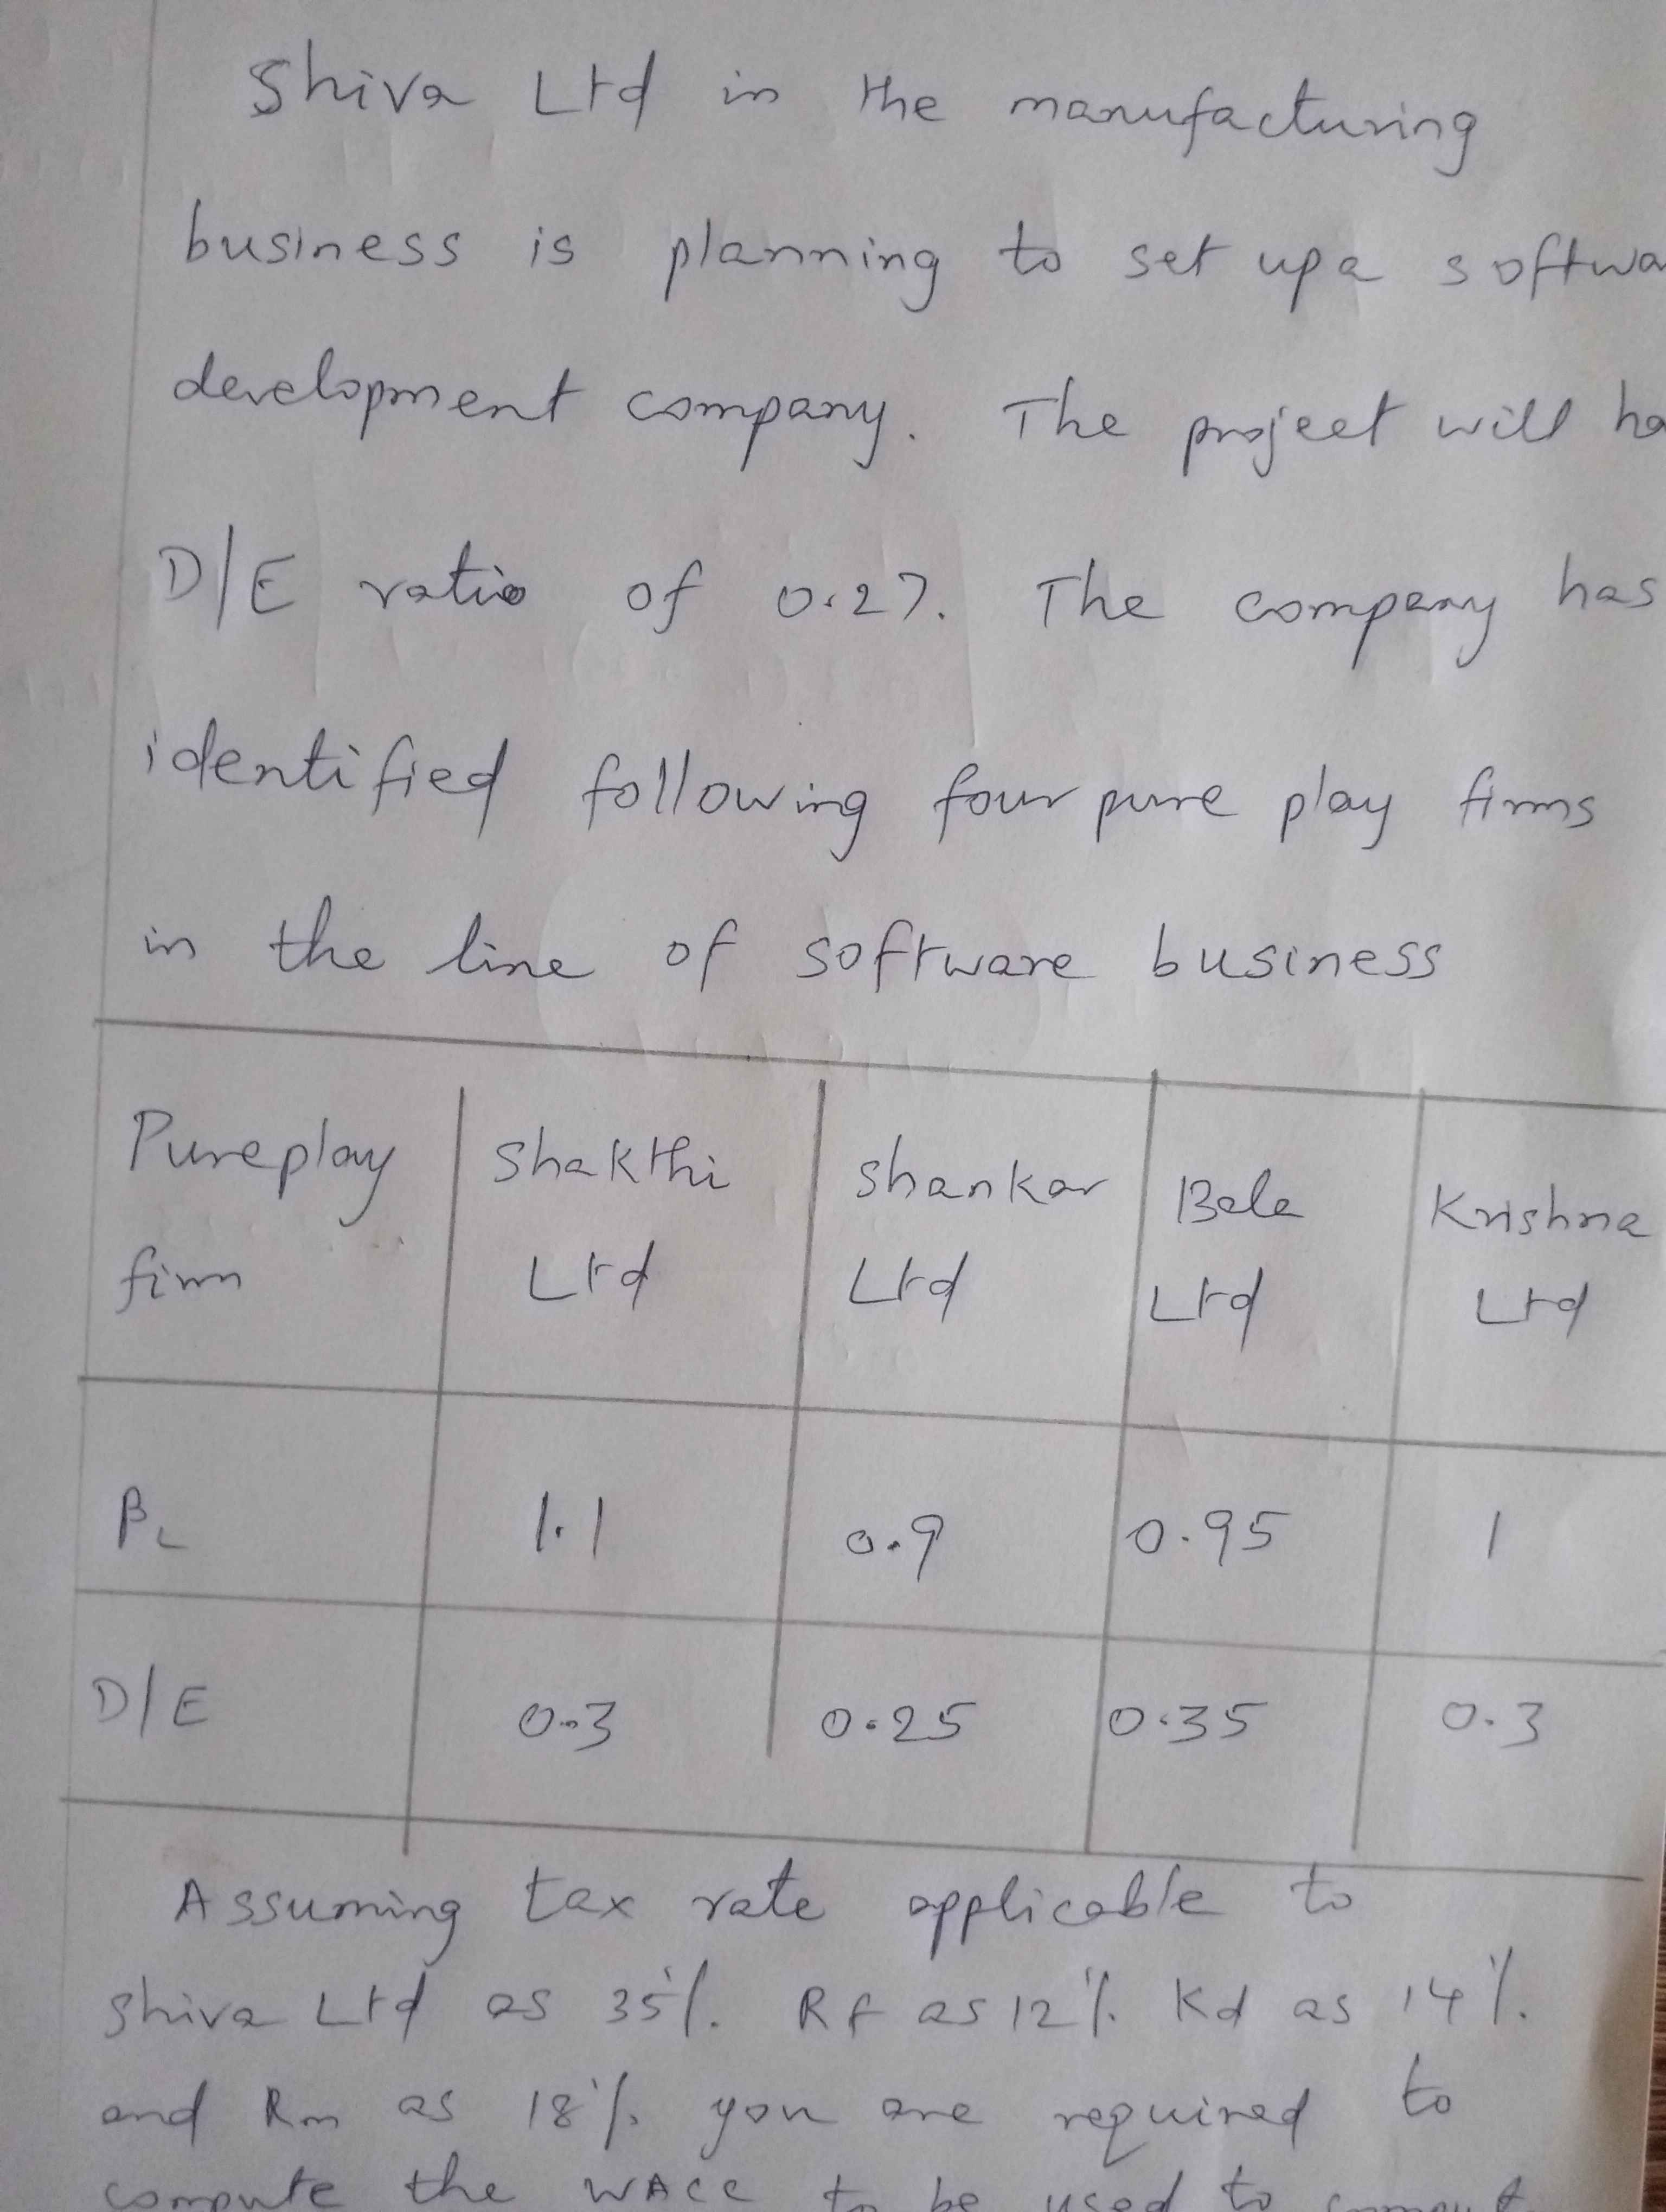 Shiva Ltd in the manufacturing
business is planning to set up a softwa
development company. The project will ha
D/E ratio of 0.27. The company has
identified following four pure play firms
in the line of software business
Pureplay firm | Shakthi Ltd | Shankar Ltd | Bala Ltd | Krishna Ltd
βL | 1.1 | 0.9 | 0.95 | 1
D/E | 0.3 | 0.25 | 0.35 | 0.3
Assuming tax rate applicable to
Shiva Ltd as 35%. Rf as 12%. Kd as 14%.
and Rm as 18%. you are required to
compute the WACC to be used to